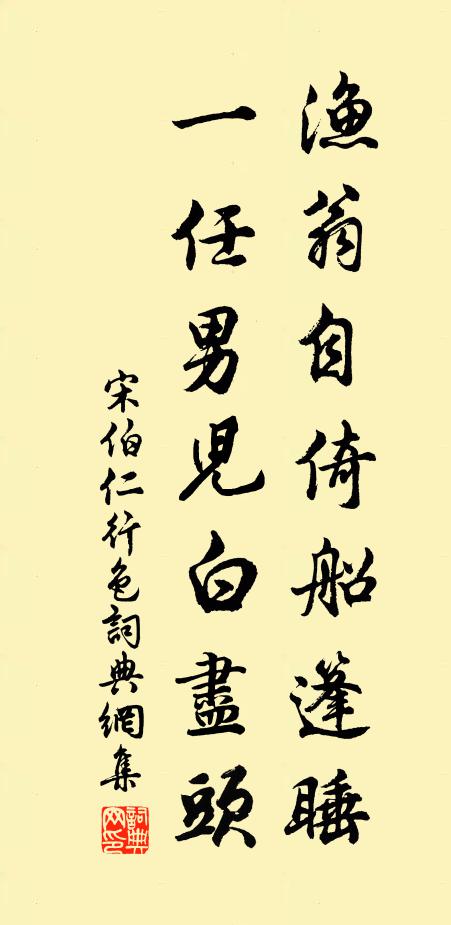 漁翁自倚船篷睡
一任男兒白盡頭
宋伯仁行色詞典網集
詞典網印